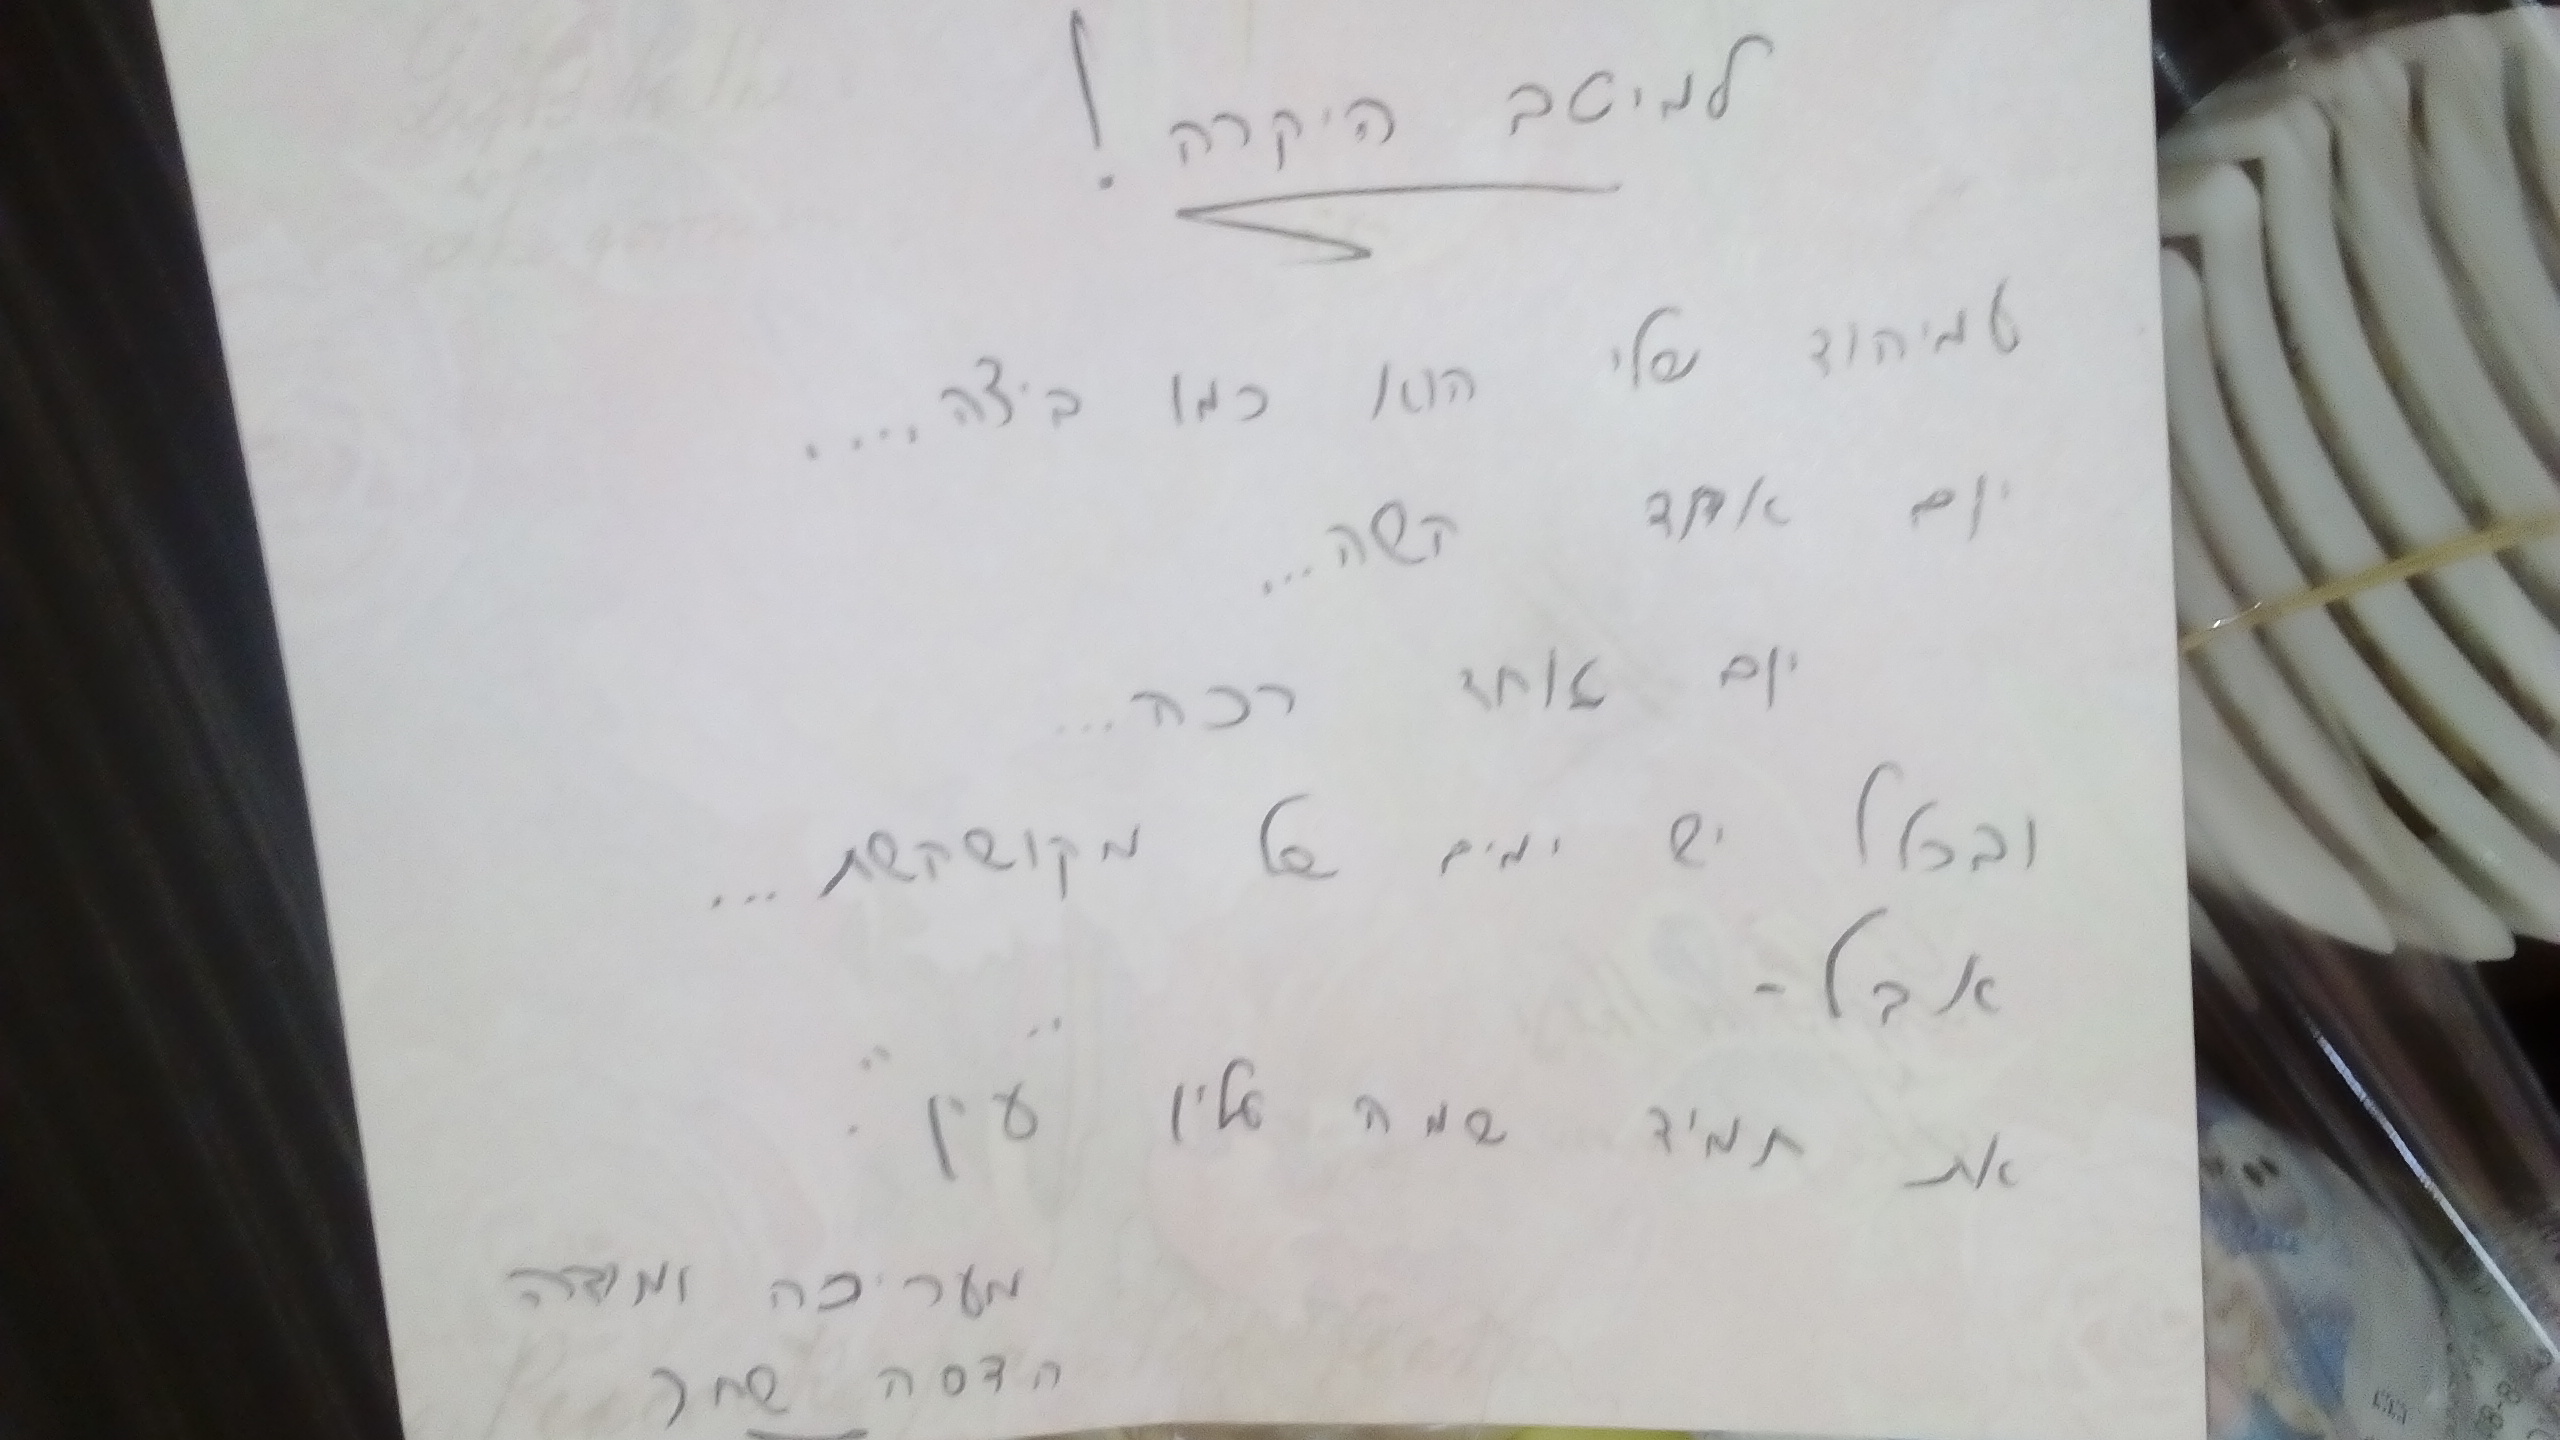 למיטב היקרה!
טמיהוד שלי הוא כמו ביצה....
יום אחד קשה...
יום אחד רכה...
ובכלל יש ימים של מקושקשת...
אבל-
את תמיד שמה עליו "עין".
מעריכה ומודה
הדסה שחר